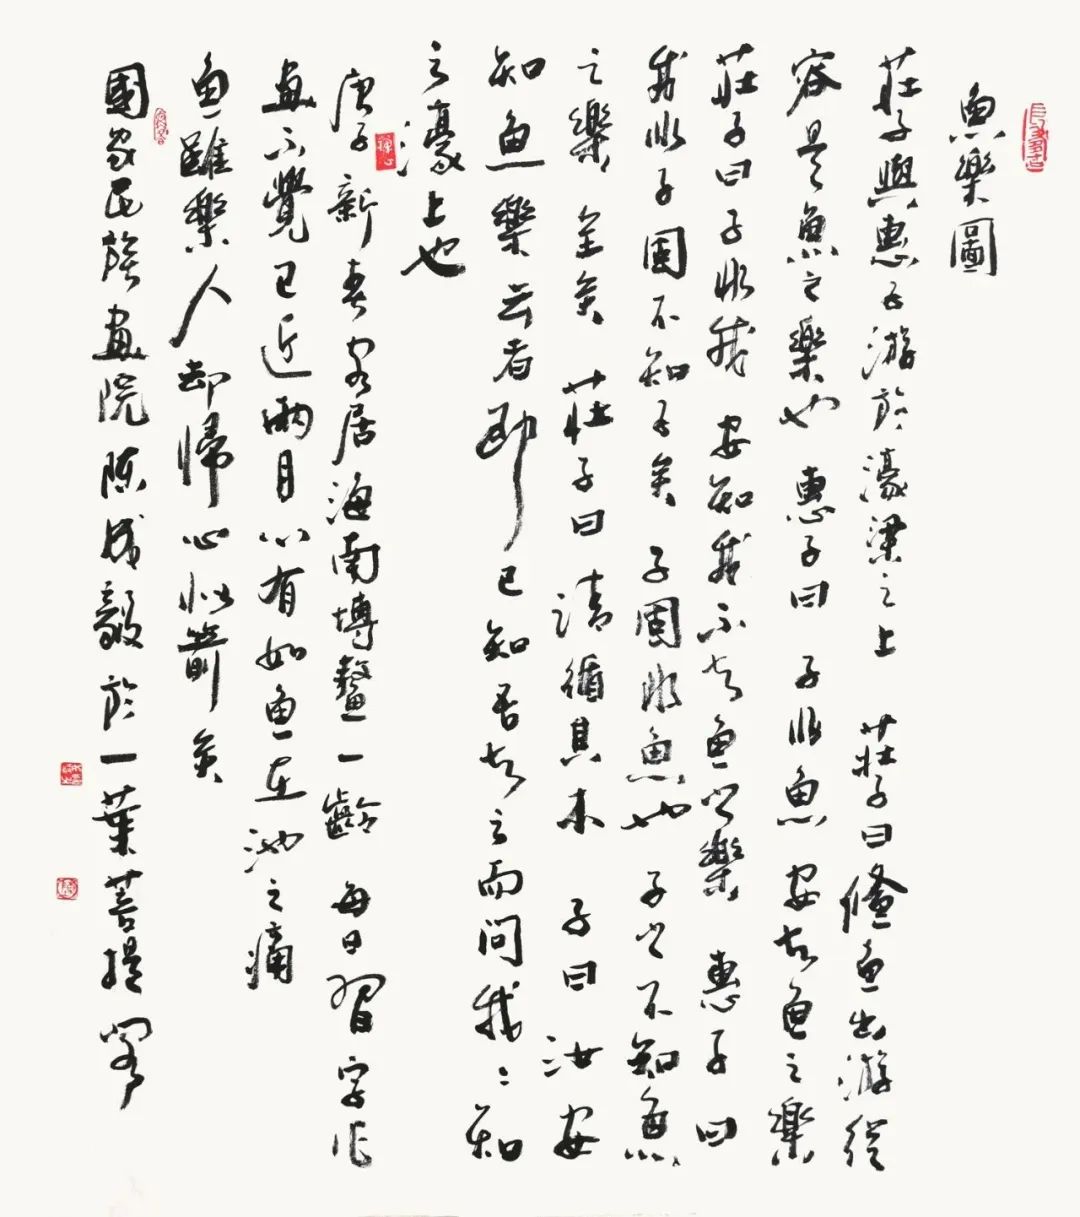 魚樂圖
莊子與惠子游於濠梁之上 莊子曰儵魚出游從
容是魚之樂也 惠子曰 子非魚 安知魚之樂
莊子曰子非我 安知我不知魚之樂 惠子曰
我非子固不知子矣 子固非魚也 子之不知魚
之樂 全矣 莊子曰 請循其本 子曰 汝安
知魚樂云者 既已知吾知之而問我〻知
之濠上也
庚子新春客居海南博鰲一齡 每日習字作
畫不覺已近兩月 心有如魚在池之痛
魚雖樂人卻歸心似箭矣
國家民族畫院陳成毅於一葉菩提閣